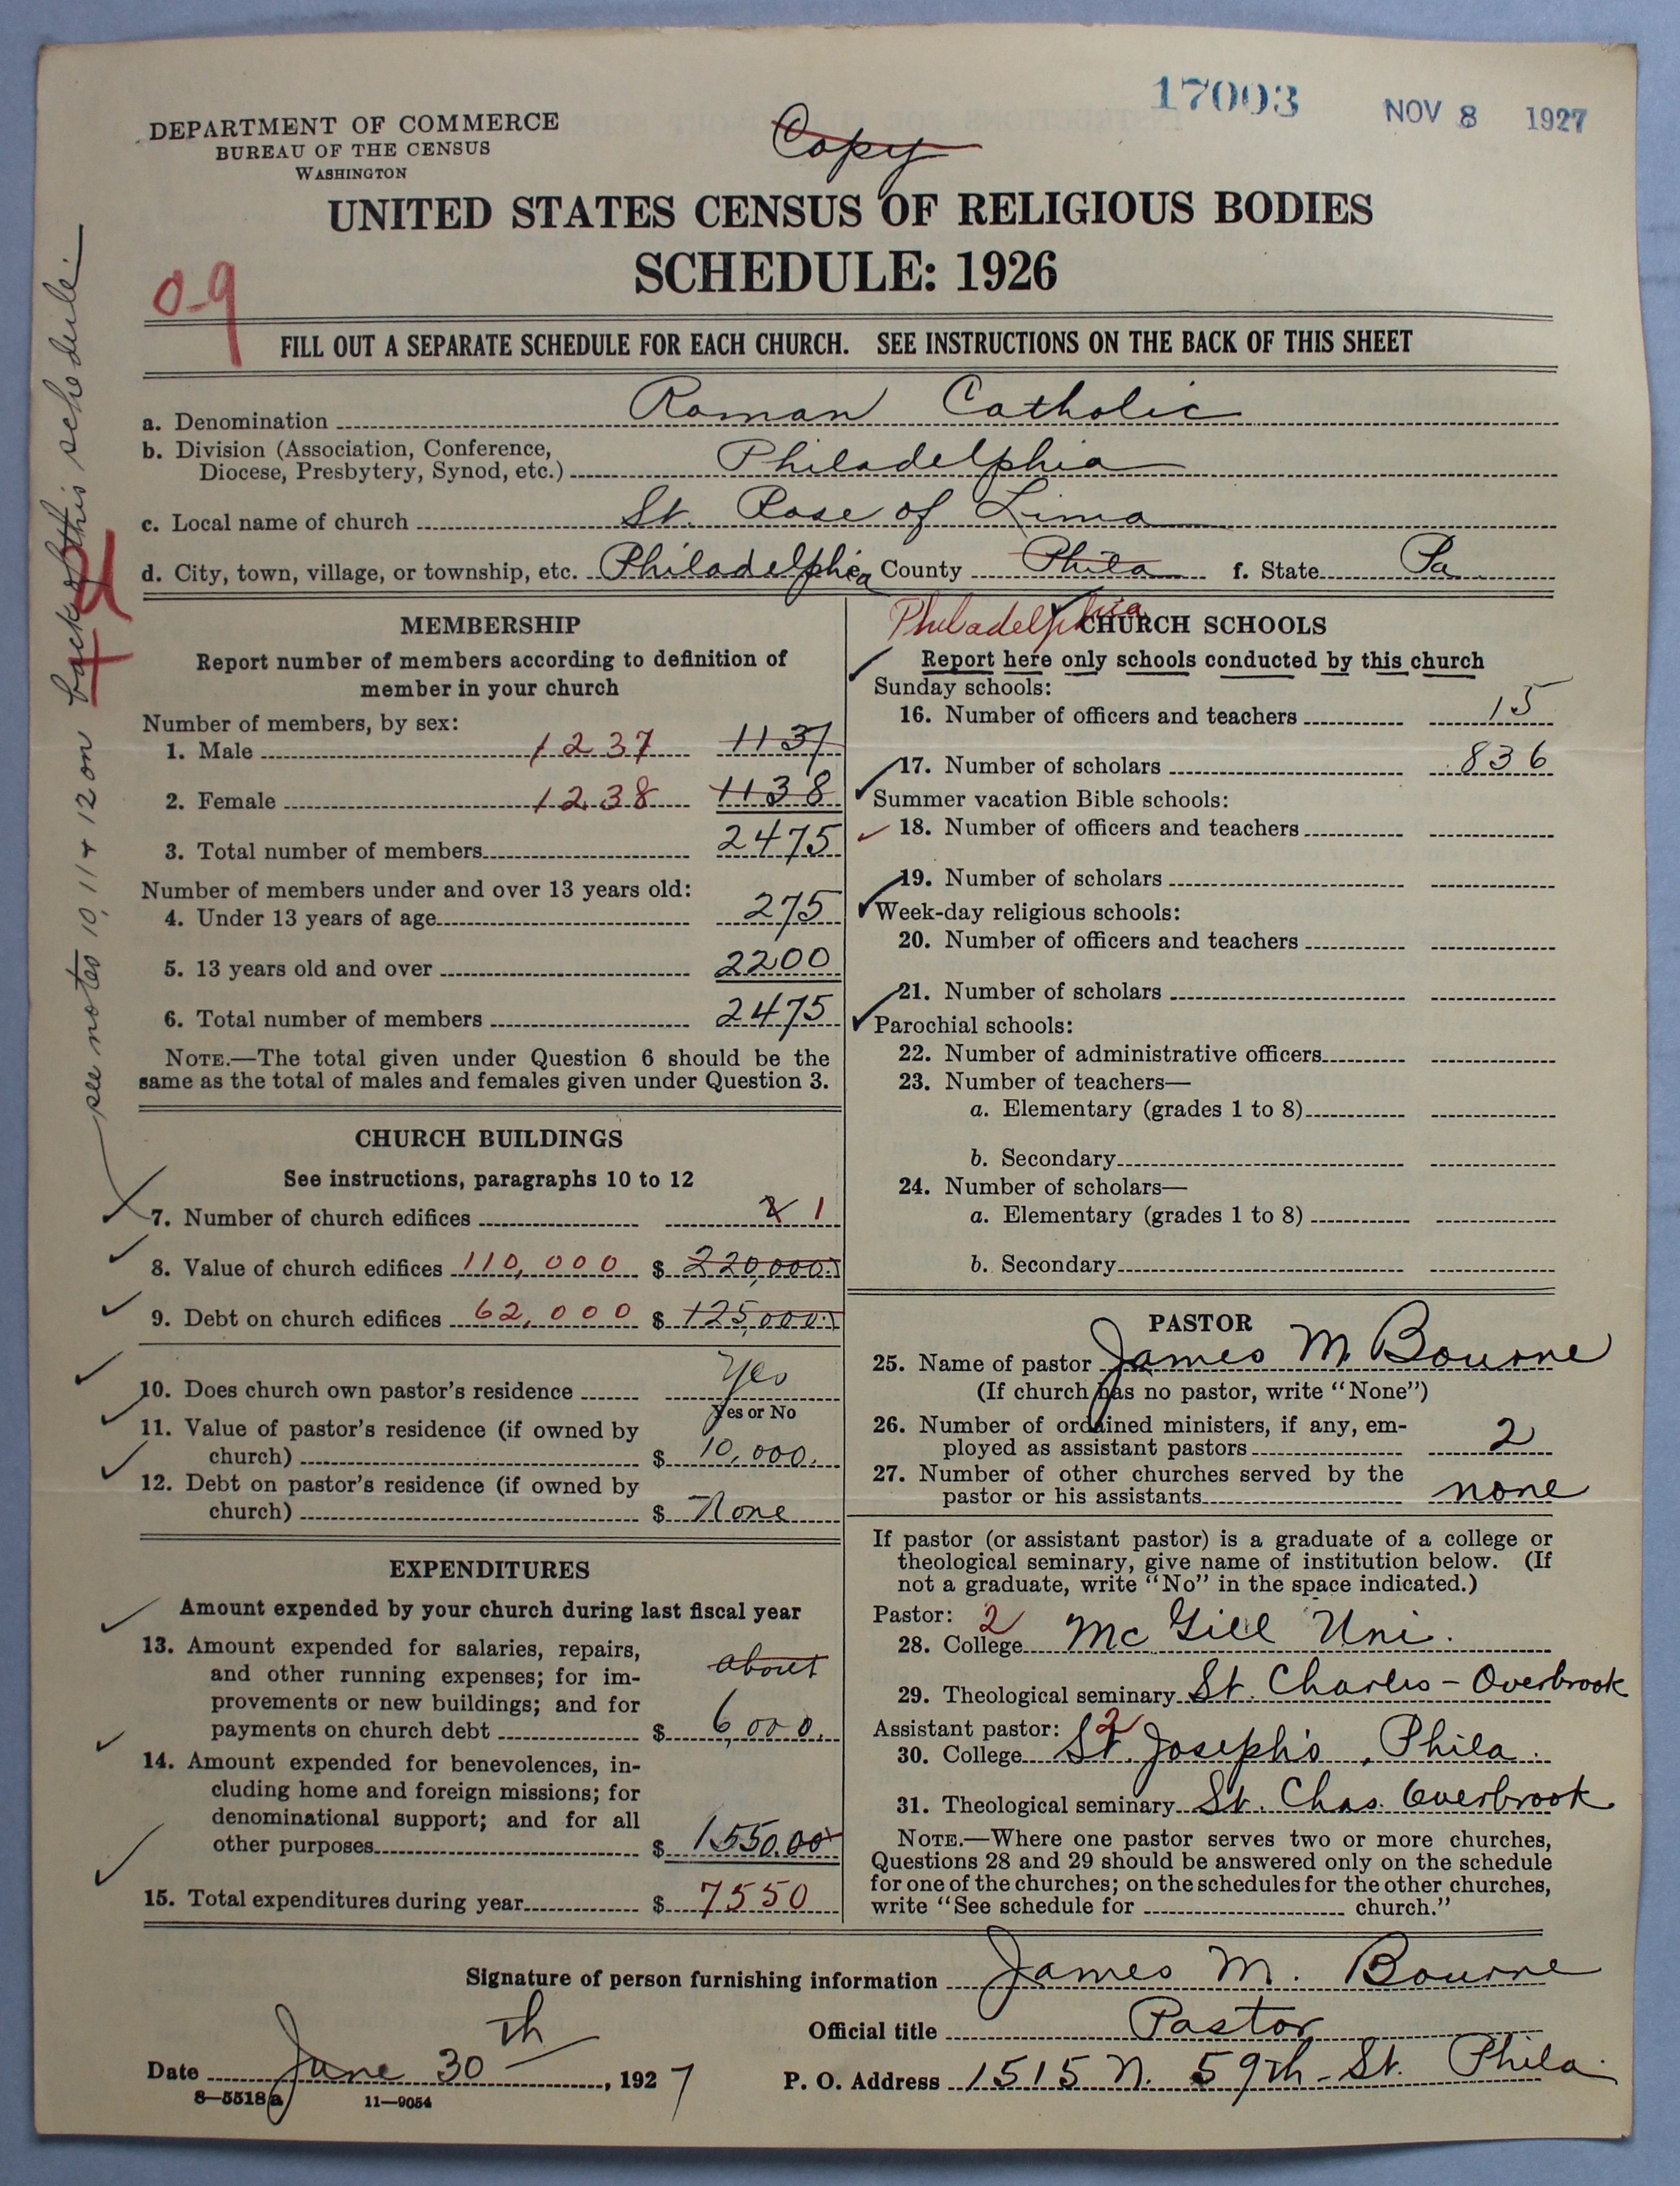 17003 NOV 8 1927
DEPARTMENT OF COMMERCE
BUREAU OF THE CENSUS
WASHINGTON
Copy
UNITED STATES CENSUS OF RELIGIOUS BODIES
SCHEDULE: 1926
0-9
FILL OUT A SEPARATE SCHEDULE FOR EACH CHURCH. SEE INSTRUCTIONS ON THE BACK OF THIS SHEET
see notes 10, 11 + 12 on back of this schedule
a. Denomination Roman Catholic
b. Division (Association, Conference,
Diocese, Presbytery, Synod, etc.) Philadelphia
c. Local name of church St. Rose of Lima
d. City, town, village, or township, etc. Philadelphia County Phila f. State Pa
Philadelphia
MEMBERSHIP
Report number of members according to definition of
member in your church
Number of members, by sex:
1. Male 1237 1137
2. Female 1238 1138
3. Total number of members 2475
Number of members under and over 13 years old:
4. Under 13 years of age 275
5. 13 years old and over 2200
6. Total number of members 2475
NOTE.—The total given under Question 6 should be the
same as the total of males and females given under Question 3.
CHURCH BUILDINGS
See instructions, paragraphs 10 to 12
7. Number of church edifices 2 1
8. Value of church edifices 110,000 $ 220,000.
9. Debt on church edifices 62,000 $ 125,000.
10. Does church own pastor's residence Yes
Yes or No
11. Value of pastor's residence (if owned by
church) $ 10,000.
12. Debt on pastor's residence (if owned by
church) $ None
EXPENDITURES
Amount expended by your church during last fiscal year
13. Amount expended for salaries, repairs,
and other running expenses; for im-
about
provements or new buildings; and for
payments on church debt $ 6,000.
14. Amount expended for benevolences, in-
cluding home and foreign missions; for
denominational support; and for all
other purposes $ 1550.00
15. Total expenditures during year $ 7550
CHURCH SCHOOLS
Report here only schools conducted by this church
Sunday schools:
16. Number of officers and teachers 15
17. Number of scholars 836
Summer vacation Bible schools:
18. Number of officers and teachers
19. Number of scholars
Week-day religious schools:
20. Number of officers and teachers
21. Number of scholars
Parochial schools:
22. Number of administrative officers
23. Number of teachers—
a. Elementary (grades 1 to 8)
b. Secondary
24. Number of scholars—
a. Elementary (grades 1 to 8)
b. Secondary
PASTOR
25. Name of pastor James M Bourne
(If church has no pastor, write "None")
26. Number of ordained ministers, if any, em-
ployed as assistant pastors 2
27. Number of other churches served by the
pastor or his assistants none
If pastor (or assistant pastor) is a graduate of a college or
theological seminary, give name of institution below. (If
not a graduate, write "No" in the space indicated.)
Pastor: 2
28. College Mc Gill Uni.
29. Theological seminary St. Charles - Overbrook
Assistant pastor: 2
30. College St. Joseph's, Phila.
31. Theological seminary St. Chas. Overbrook
NOTE.—Where one pastor serves two or more churches,
Questions 28 and 29 should be answered only on the schedule
for one of the churches; on the schedules for the other churches,
write "See schedule for church."
Signature of person furnishing information James M. Bourne
Official title Pastor
Date June 30th, 1927 P. O. Address 1515 N. 59th St. Phila.
8—5518a 11—9054